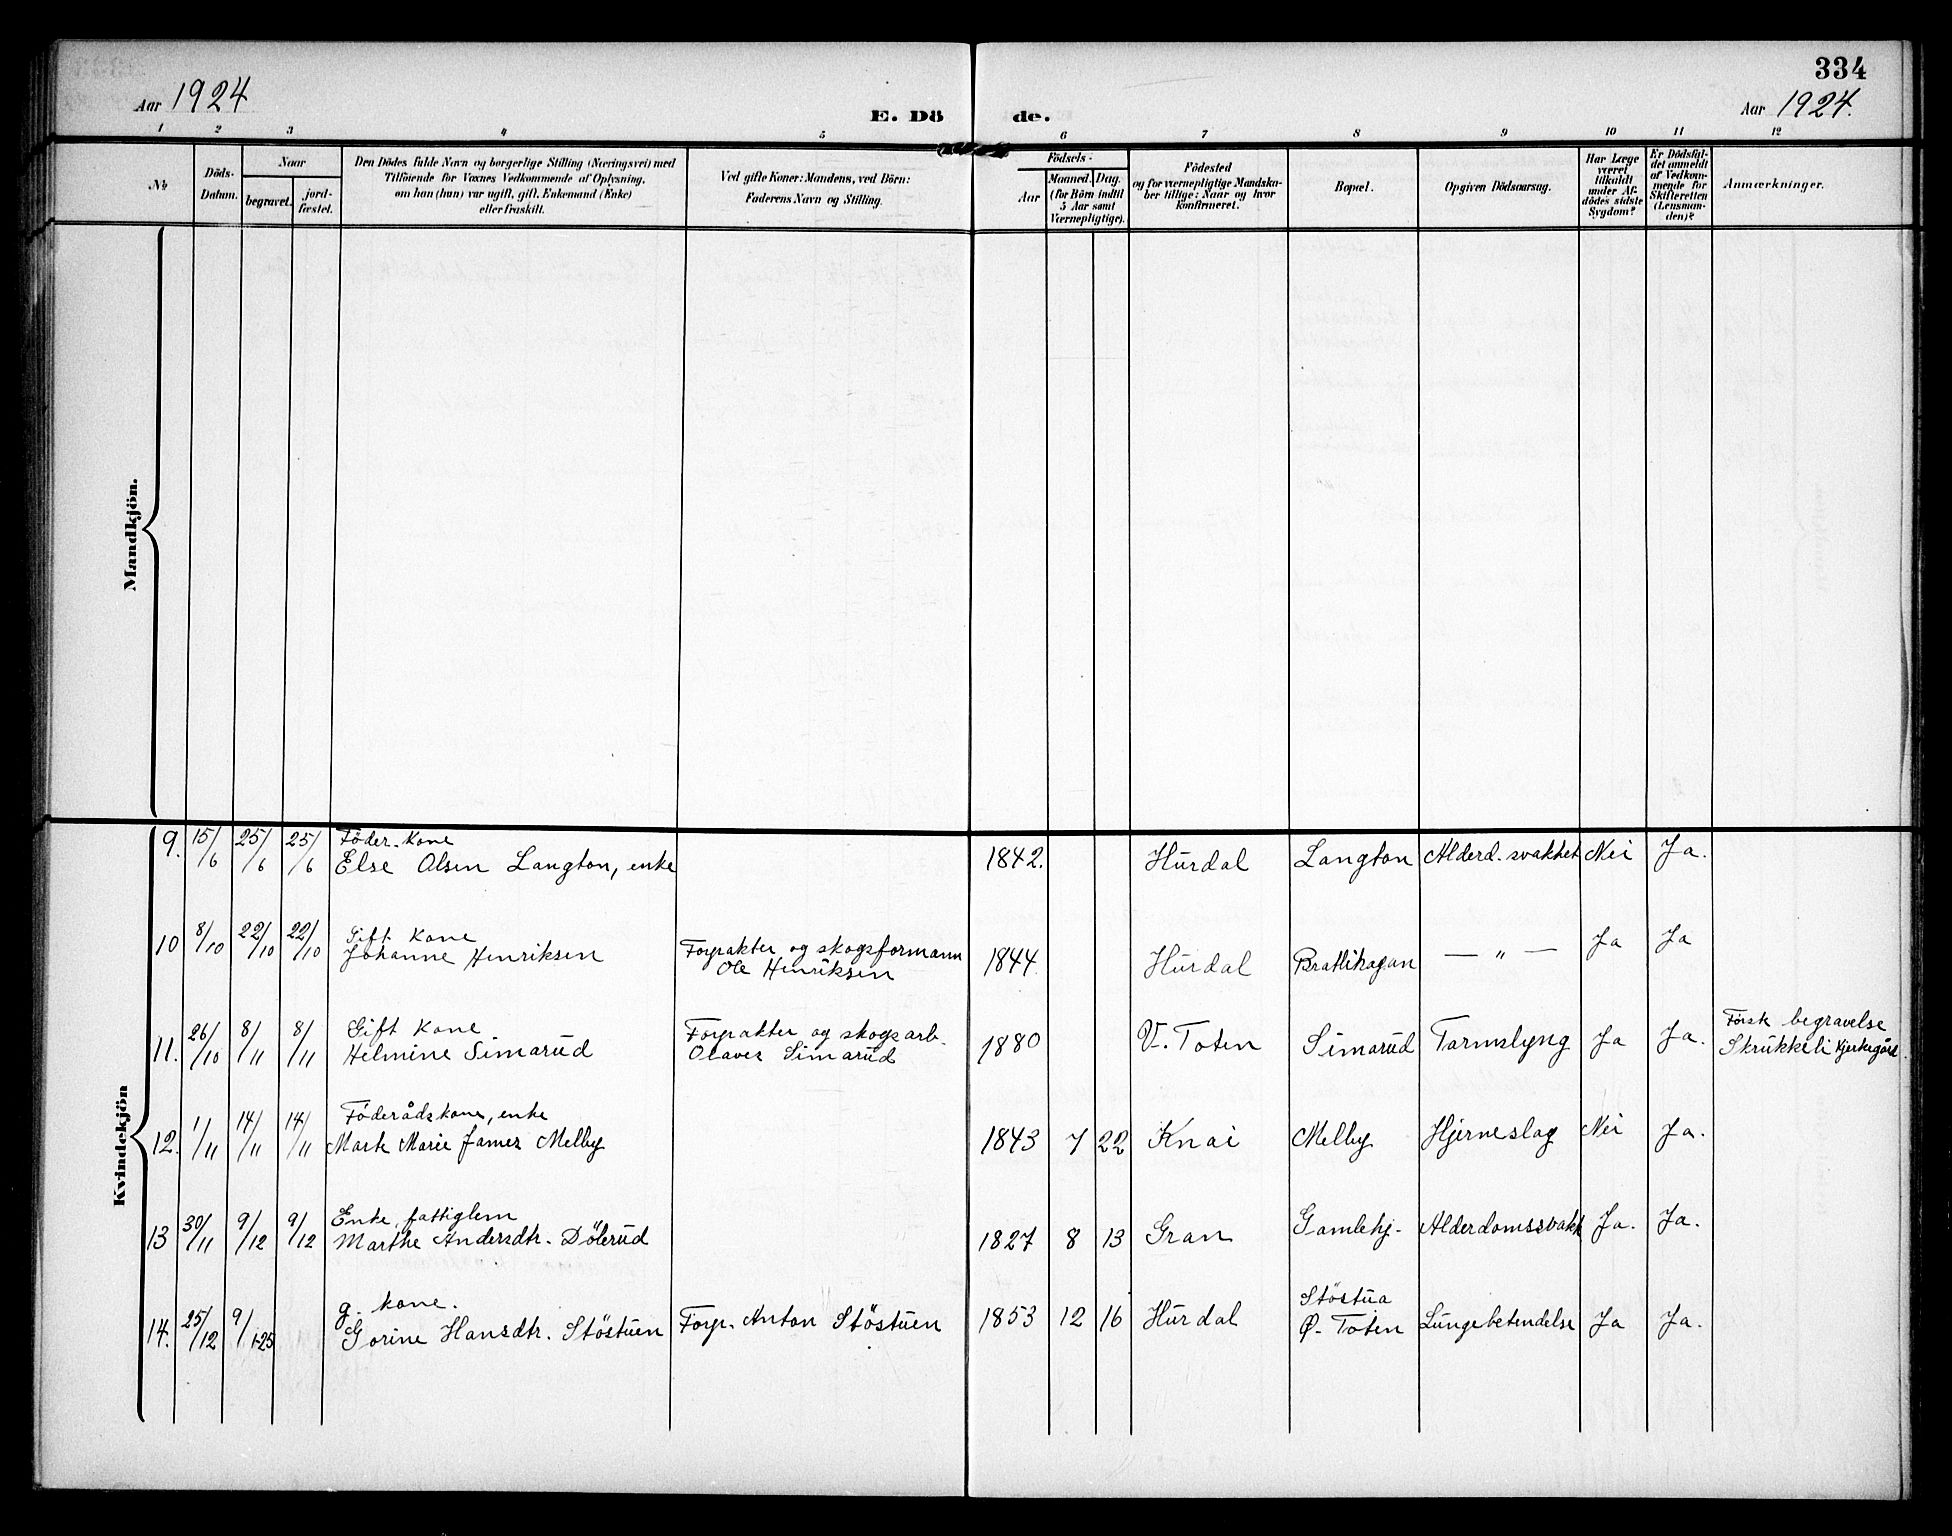 334
Aar 1924
E. Dö de.
Aar 1924.
1 2 3 4 5 6 7 8 9 10 11 12
№
Döds-
Datum.
Naar
begravet.
jord-
fæstet.
Den Dödes fulde Navn og borgerlige Stilling (Næringsvei) med
Tilföiende for Voxnes Vedkommende af Oplysning,
om han (hun) var ugift, gift, Enkemand (Enke)
eller fraskilt.
Ved gifte Koner: Mandens, ved Börn:
Faderens Navn og Stilling.
Födsels-
Aar
Maaned. Dag.
(for Börn indtil
5 Aar samt
Værnepligtige).
Födested
og for værnepligtige Mandska-
ber tillige: Naar og hvor
konfirmeret.
Bopæl.
Opgiven Dödsaarsag.
Har Læge
været
tilkaldt
under Af-
dödes sidste
Sygdom?
Er Dödsfal-
det anmeldt
af Vedkom-
mende for
Skifteretten
(Lensman-
den)?
Anmærkninger.
Mandkjön.
Kvindekjön
9. 15/6 25/6 25/6 Föder. kone
Else Olsen Langton, enke 1842. Hurdal Langton Alderd. svakhet Nei Ja.
10 8/10 22/10 22/10 Gift kone Forpakter og skogsformann
Johanne Henriksen Ole Henriksen 1844 Hurdal Bratlihagan — „ — Ja Ja
11. 26/10 8/11 8/11 Gift kone Forpakter og skogsarb. Försk begravelse
Helmine Simarud Olaves Simarud 1880 V. Toten Simarud Tarmslyng Ja Ja. Skrukkeli kjerkegård.
12. 1/11 14/11 14/11 Föderådskone, enke
Marte Marie James Melby 1843 7 22 Knai Melby Hjerneslag Nei Ja.
13 30/11 9/12 9/12 Enke, fattiglem
Marthe Andersdtr. Dölerud 1827 8 13 Gran Gamlehj. Alderdomssvakh Ja. Ja.
14. 25/12 9/1-25 g. kone. Stöstua
Gorine Hansdtr. Stöstuen Forp. Anton Stöstuen 1853 12 16 Hurdal Ø. Toten Lungebetendelse Ja Ja.